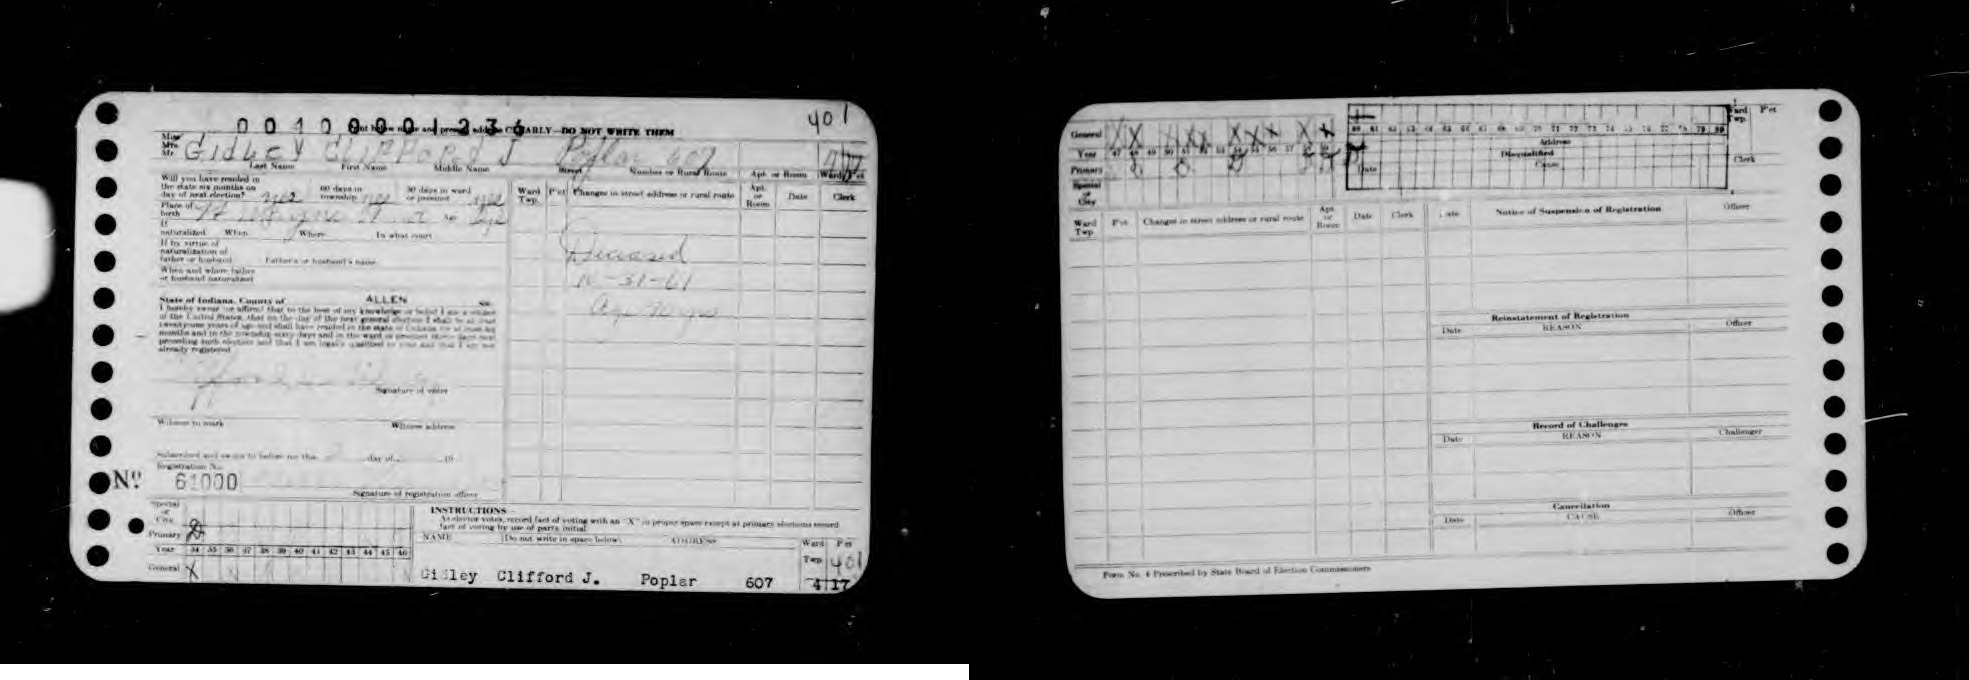 401
00100001236
Print below name and present address CLEARLY—DO NOT WRITE THEM
Miss
Mrs
Mr.
Gidley Clifford J Poplar 607 4 17
Last Name First Name Middle Name Street Number or Rural Route Apt. or Room Ward P'ct
Will you have resided in
the state six months on
day of next election? yes
60 days in
township yes
30 days in ward
or precinct yes
Place of
birth Ft Wayne Age yes
If
naturalized When Where In what court
If by virtue of
naturalization of
father or husband Father's or husband's name
When and where father
or husband naturalized
State of Indiana, County of ALLEN ss:
I hereby swear (or affirm) that to the best of my knowledge or belief I am a citizen
of the United States, that on the day of the next general election I shall be at least
twenty-one years of age and shall have resided in the state of Indiana for at least six
months and in the township sixty days and in the ward or precinct thirty days next
preceding such election and that I am legally qualified to vote and that I am not
already registered
Signature of voter
Witness to mark Witness address
Subscribed and sworn to before me this day of 19
Registration No.
No. 61000
Signature of registration officer
Ward
Twp. P'ct Changes in street address or rural route Apt.
or
Room Date Clerk
Deceased
-31-61
Age
Special
or
City
Primary
Year 34 35 36 37 38 39 40 41 42 43 44 45 46
General X
INSTRUCTIONS
As elector votes, record fact of voting with an "X" in proper space except at primary elections record
fact of voting by use of party initial
NAME (Do not write in space below) ADDRESS Ward P'ct
Twp. 401
Gidley Clifford J. Poplar 607 4 17
General
Year 47 48 49 50 51 52 53 54 55 56 57 58 59
Primary
Special
or
City
60 61 62 63 64 65 66 67 68 69 70 71 72 73 74 75 76 77 78 79 80
Address
Disqualified
Date Cause
Ward
Twp. P'ct
Clerk
Ward
Twp. P'ct Changes in street address or rural route Apt.
or
Room Date Clerk
Date Notice of Suspension of Registration Officer
Reinstatement of Registration
Date REASON Officer
Record of Challenges
Date REASON Challenger
Cancellation
Date CAUSE Officer
Form No. 4 Prescribed by State Board of Election Commissioners